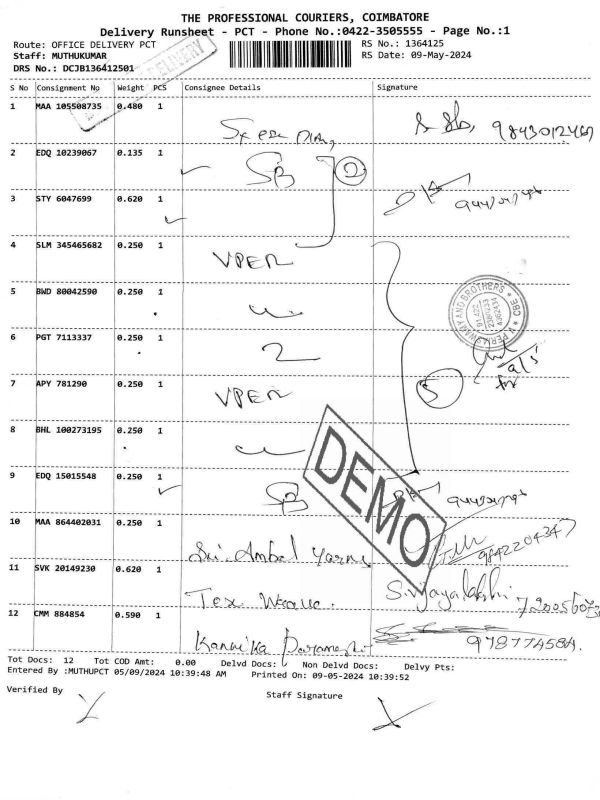 THE PROFESSIONAL COURIERS, COIMBATORE
Delivery Runsheet - PCT - Phone No.:0422-3505555 - Page No.:1
Route: OFFICE DELIVERY PCT RS No.: 1364125
Staff: MUTHUKUMAR RS Date: 09-May-2024
DRS No.: DCJB136412501
DELIVERY
S No Consignment No Weight PCS Consignee Details Signature
1 MAA 105508735 0.480 1
2 EDQ 10239067 0.135 1 SB 2
3 STY 6047699 0.620 1
4 SLM 345465682 0.250 1 VPER
5 BWD 80042590 0.250 1
6 PGT 7113337 0.250 1
7 APY 781290 0.250 1 VPER
5
8 BHL 100273195 0.250 1
9 EDQ 15015548 0.250 1 SB
DEMO
10 MAA 864402031 0.250 1 Sri. Ambal Yarns
11 SVK 20149230 0.620 1 Tex Weave. S. Vijayalakshi
12 CMM 884854 0.590 1 Kannika
Tot Docs: 12 Tot COD Amt: 0.00 Delvd Docs: Non Delvd Docs: Delvy Pts:
Entered By :MUTHUPCT 05/09/2024 10:39:48 AM Printed On: 09-05-2024 10:39:52
Verified By Staff Signature